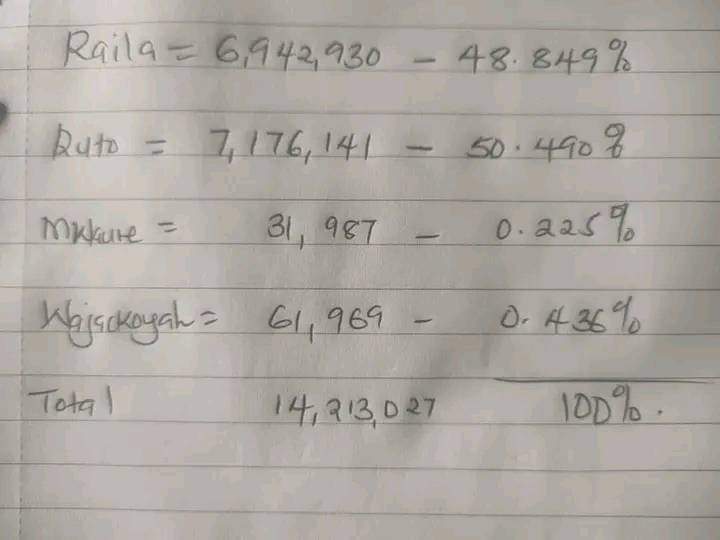 Raila = 6,942,930 - 48.849%
Ruto = 7,176,141 - 50.490%
Mwaure = 31,987 - 0.225%
Wajackoyah = 61,969 - 0.436%
Total 14,213,027 100%.